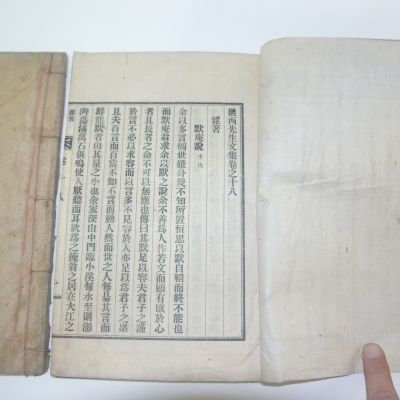 西先生文集卷之十八
雜著
默庵說 壬戌
余以多言觸世戮身幾不知所置恒思以默自韜而終不能也
而默庵翁求余以默之說余不善爲人作若文而顧有感於心
者且長者之命不可以無應也傳曰其默足以容夫子之謹
於言不必以求容而以言多不見容於人亦足以爲君子之累
且夫百言而百當不如不言而動人然而世之人每易其言而
鮮能默者由其量之小也余家深山中門臨小溪每水至則澎
湃蕩潏萬石俱鳴使人厭聽而耳欲爲之掩翁之居在大江之
雜著
卷十八